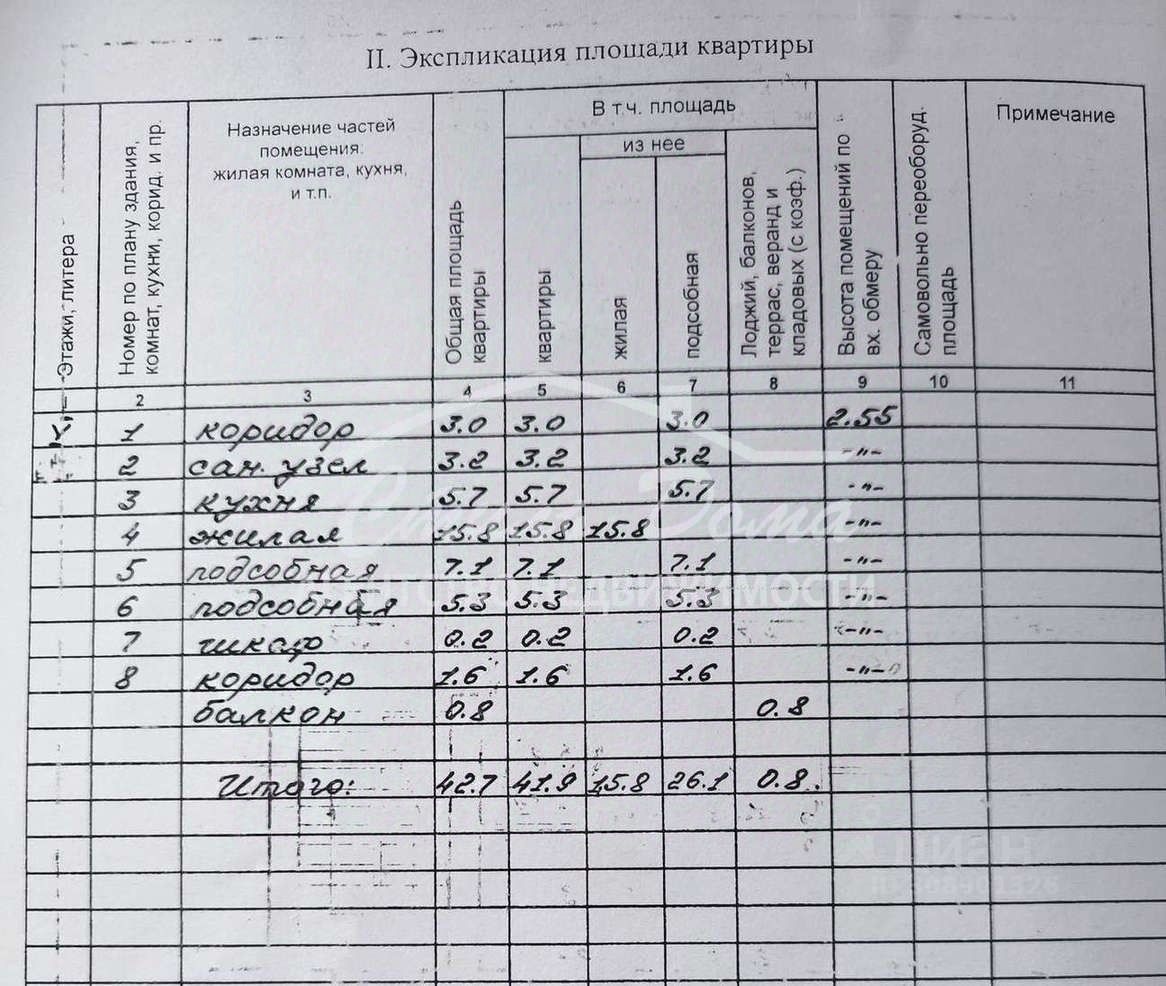 II. Экспликация площади квартиры
Этажи, литера
Номер по плану здания, комнат, кухни, корид. и пр.
Назначение частей помещения: жилая комната, кухня, и т.п.
Общая площадь квартиры
В т.ч. площадь
квартиры
из нее
жилая
подсобная
Лоджий, балконов, террас, веранд и кладовых (с коэф.)
Высота помещений по вх. обмеру
Самовольно переоборуд. площадь
Примечание
2 3 4 5 6 7 8 9 10 11
1 коридор 3.0 3.0 3.0 2.55
2 сан. узел 3.2 3.2 3.2 -"-
3 кухня 5.7 5.7 5.7 -"-
4 жилая 15.8 15.8 15.8 -"-
5 подсобная 7.1 7.1 7.1 -"-
6 подсобная 5.3 5.3 5.3 -"-
7 шкаф 0.2 0.2 0.2 -"-
8 коридор 1.6 1.6 1.6 -"-
балкон 0.8 0.8
Итого: 42.7 41.9 15.8 26.1 0.8.
циан